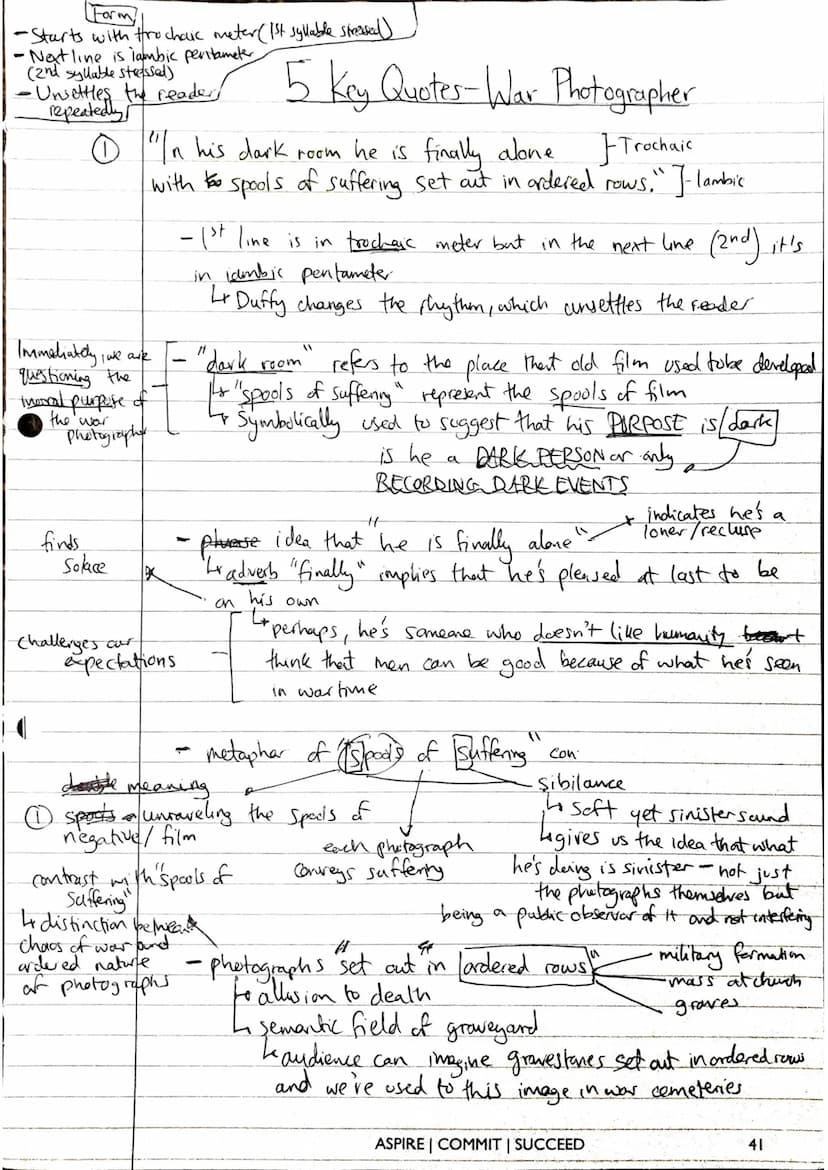 Form
- Starts with trochaic meter (1st syllable stressed)
- Next line is iambic pentameter
(2nd syllable stressed)
- Unsettles the reader
repeatedly
5 Key Quotes - War Photographer
① "In his dark room he is finally alone ]- Trochaic
with spools of suffering set out in ordered rows." ]- Iambic
- 1st line is in trochaic meter but in the next line (2nd) it's
in iambic pentameter
↳ Duffy changes the rhythm, which unsettles the reader
Immediately, we are
questioning the
moral purpose of
the war
photographer
- "dark room" refers to the place that old film used to be developed
↳ "spools of suffering" represent the spools of film
↳ Symbolically used to suggest that his PURPOSE is dark
is he a DARK PERSON or only
RECORDING DARK EVENTS
finds
solace
- phrase idea that "he is finally alone"
indicates he's a
loner/recluse
↳ adverb "finally" implies that he's pleased at last to be
on his own
challenges our
expectations
↳ perhaps, he's someone who doesn't like humanity
think that men can be good because of what he's seen
in wartime
- metaphor of "spools of suffering" con
double meaning
① spools unraveling the spools of
negative/film
each photograph
conveys suffering
sibilance
↳ soft yet sinister sound
↳ gives us the idea that what
he's doing is sinister - not just
the photographs themselves but
being a public observor of it and not interfering
contrast with "spools of
suffering"
↳ distinction between
chaos of war and
ordered nature
of photographs
- photographs "set out" "in ordered rows"
military formation
mass at church
graves
↳ allusion to death
↳ semantic field of graveyard
↳ audience can imagine gravestones set out in ordered rows
and we've used to this image in war cemeteries
ASPIRE | COMMIT | SUCCEED 41